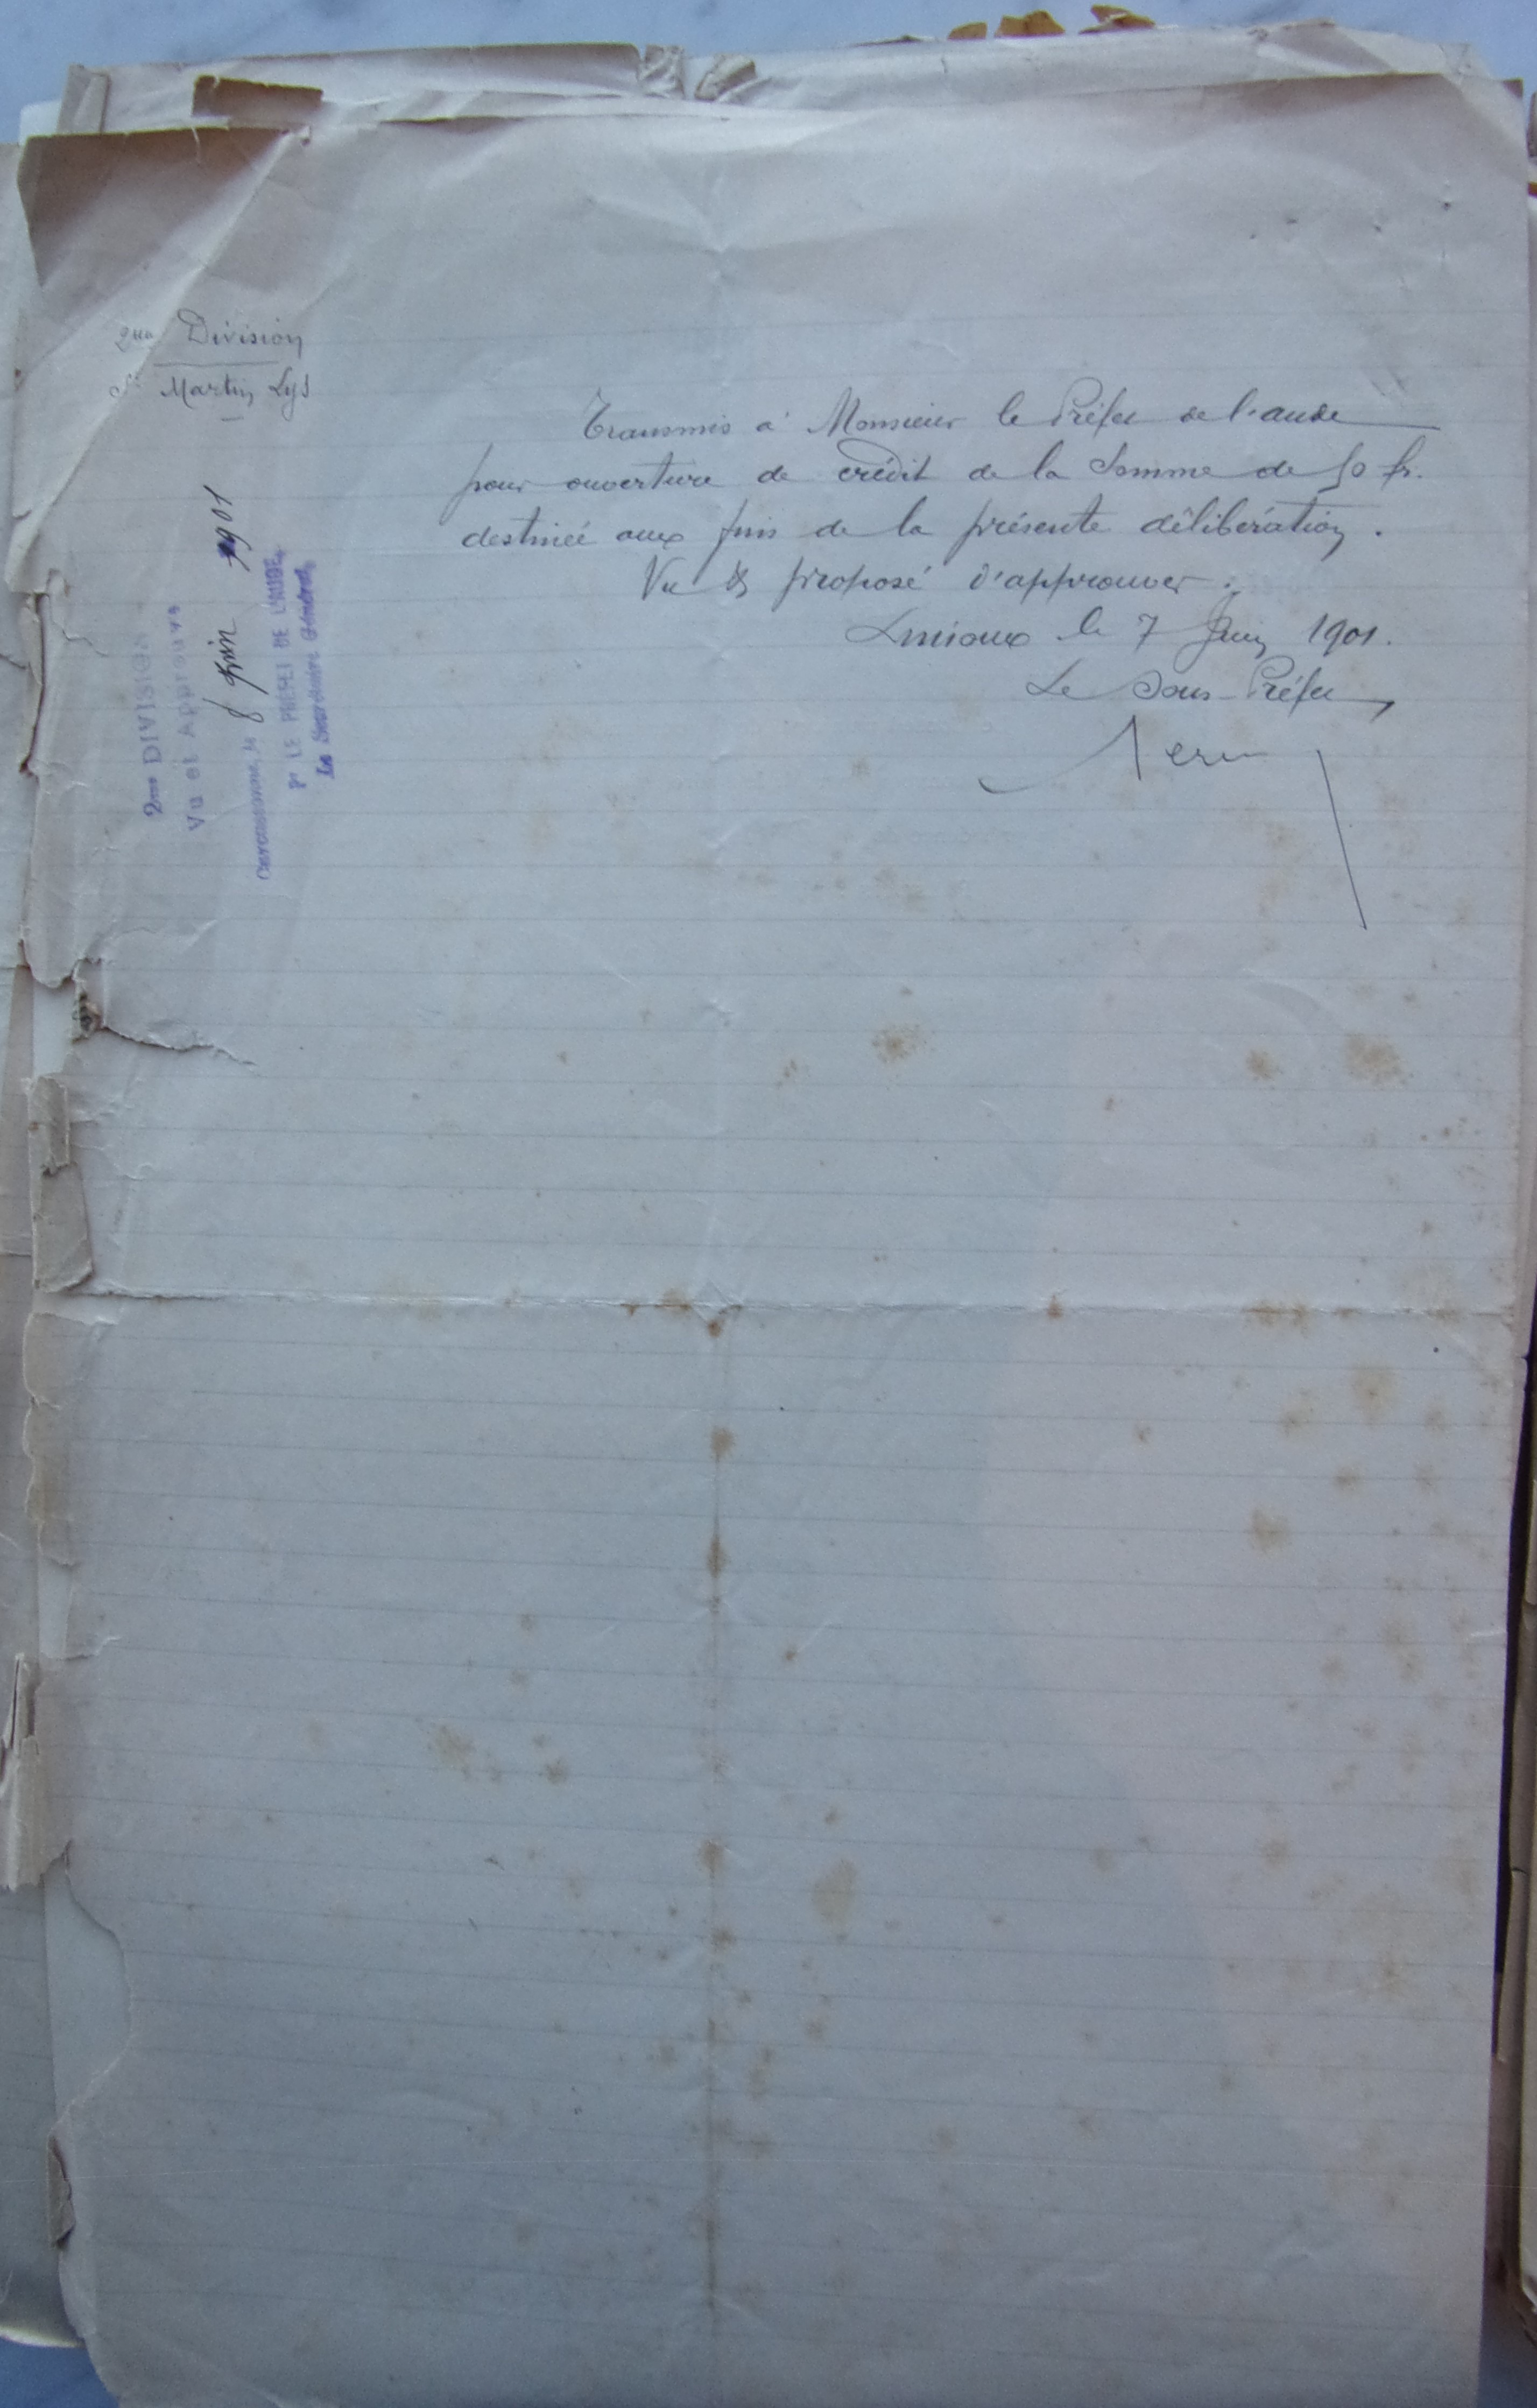 2me Division
St Martin Lys
Transmis à Monsieur le Préfet de l'aude
pour ouverture de crédit de la Somme de 50 fr.
destinée aux fins de la présente délibération.
Vu & proposé d'approuver.
Limoux le 7 Juin 1901.
Le Sous-Préfet
2me DIVISION
Vu et Approuvé
Carcassonne, le 8 Juin 1901
Pr LE PREFET DE L'AUDE,
Le Secrétaire Général,